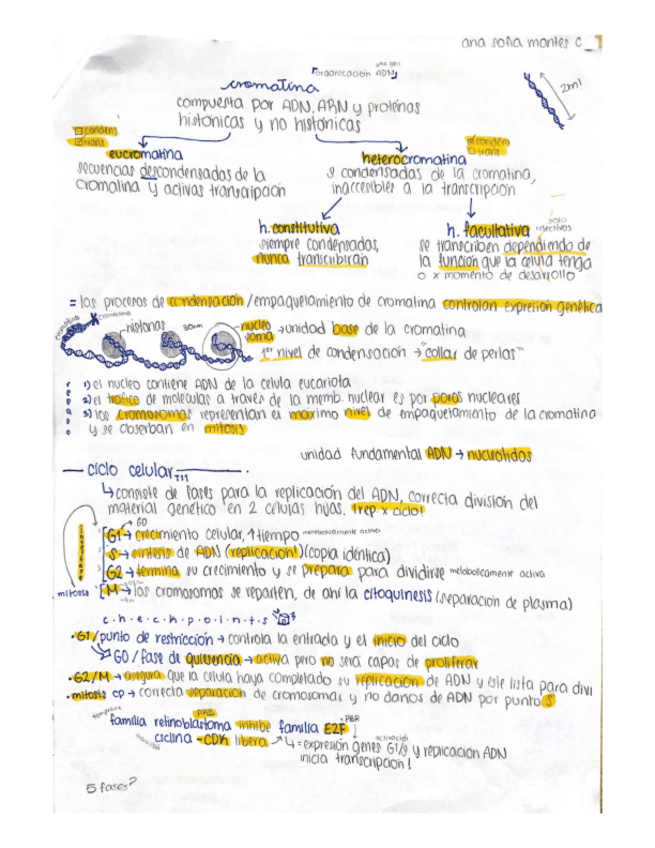 ana sofia montes c
organización ADN
cromatina
2m!
compuesta por ADN, ARN y proteínas
histónicas y no histónicas
condens
trans
condens
trans
eucromatina
heterocromatina
secuencias descondensadas de la
cromatina y activas transcripción
s. condensadas de la cromatina,
inaccesibles a la transcripción
h. constitutiva
h. facultativa
solo
siempre condensadas,
nunca transcribirán
se transcriben dependiendo de
la función que la célula tenga
o x momento de desarrollo
= los procesos de condensación / empaquetamiento de cromatina controlan expresión genética
cromatina
cromosoma
histonas
30nm
nucleo
soma
→ unidad base de la cromatina
1er nivel de condensación → "collar de perlas"
1) el nucleo contiene ADN de la celula eucariota
2) el tráfico de moléculas a través de la memb. nuclear es por poros nucleares
3) los cromosomas representan el máximo nivel de empaquetamiento de la cromatina
y se observan en mitosis
unidad fundamental ADN → nucleotidos
ciclo celular
↳ consiste de fases para la replicación del ADN, correcta división del
material genético en 2 células hijas. 1 rep. x ciclo!
G0
G1 → crecimiento celular, ↑tiempo metabolicamente activa
S → síntesis de ADN (replicación!) (copia idéntica)
G2 → termina su crecimiento y se prepara para dividirse metabolicamente activa
mitosis M → los cromosomas se reparten, de ahí la citoquinesis (separación de plasma)
c.h.e.c.h.p.o.i.n.t.s
• G1/punto de restricción → controla la entrada y el inicio del ciclo
G0 / fase de quiucencia → activa pero no será capas de proliferar
• G2/M → asegura que la celula haya completado su replicación de ADN y este lista para divi
• mitosis cp → correcta separación de cromosomas y no danos de ADN por punto S
PRB
familia retinoblastoma inhibe familia E2F
PBR
ciclina - CDK libera
activación
↳ = expresión genes G1/s y replicacion ADN
inicia transcripcion!
5 fases?